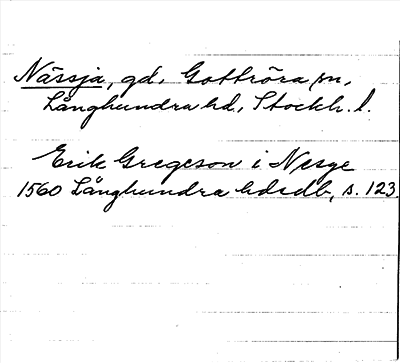 Nässja, gd, Gottröra sn,
Långhundra hd, Stockh. l.
Erik Gregeson i Nesye
1560 Långhundra hdsdb, s. 123.